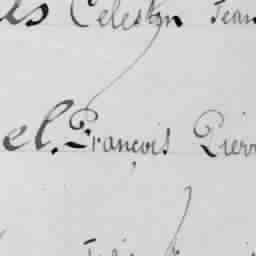 es Celestin Jean
el. François Pierr